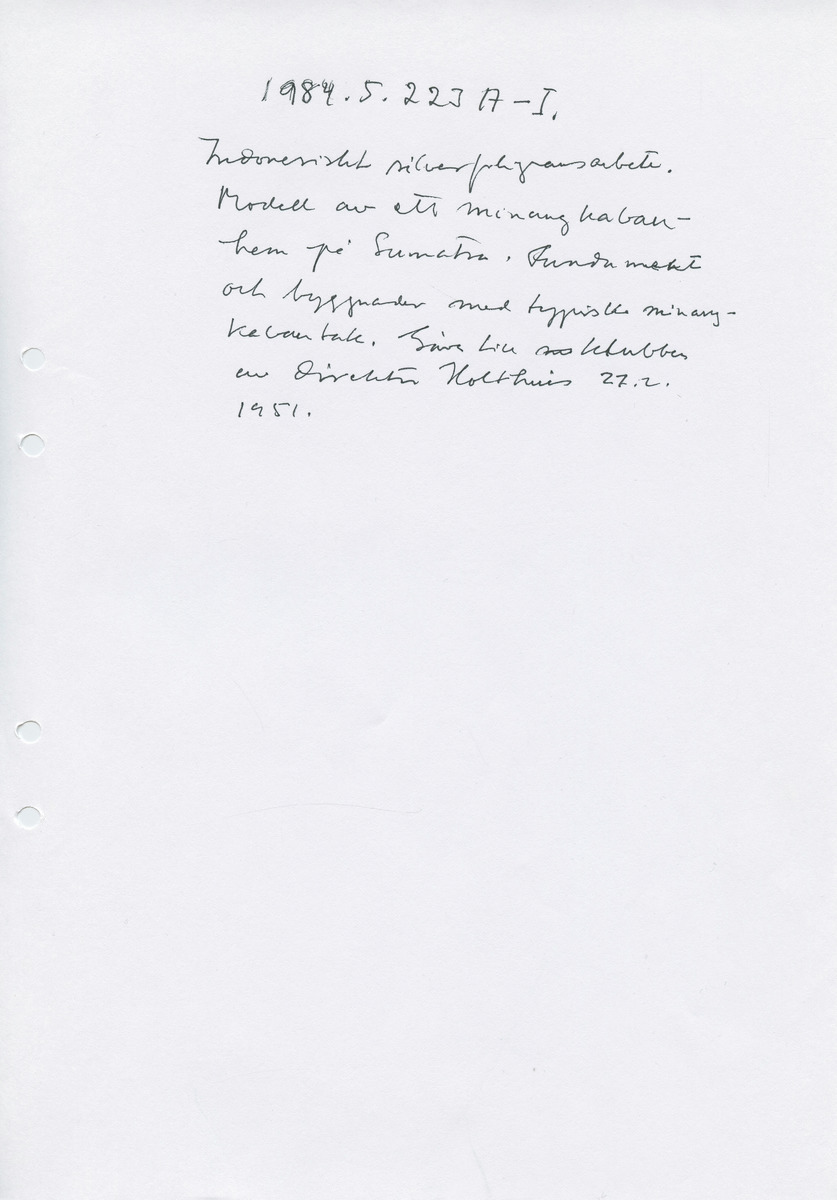 1984.5.223 A-I.
Indonesiskt silverfiligransarbete.
Modell av ett minangkabau-
hem på Sumatra. Fundament
och byggnader med typiska minang-
kabautak. Gåva till klubben
av Direktör Holthuis 27.2.
1951.